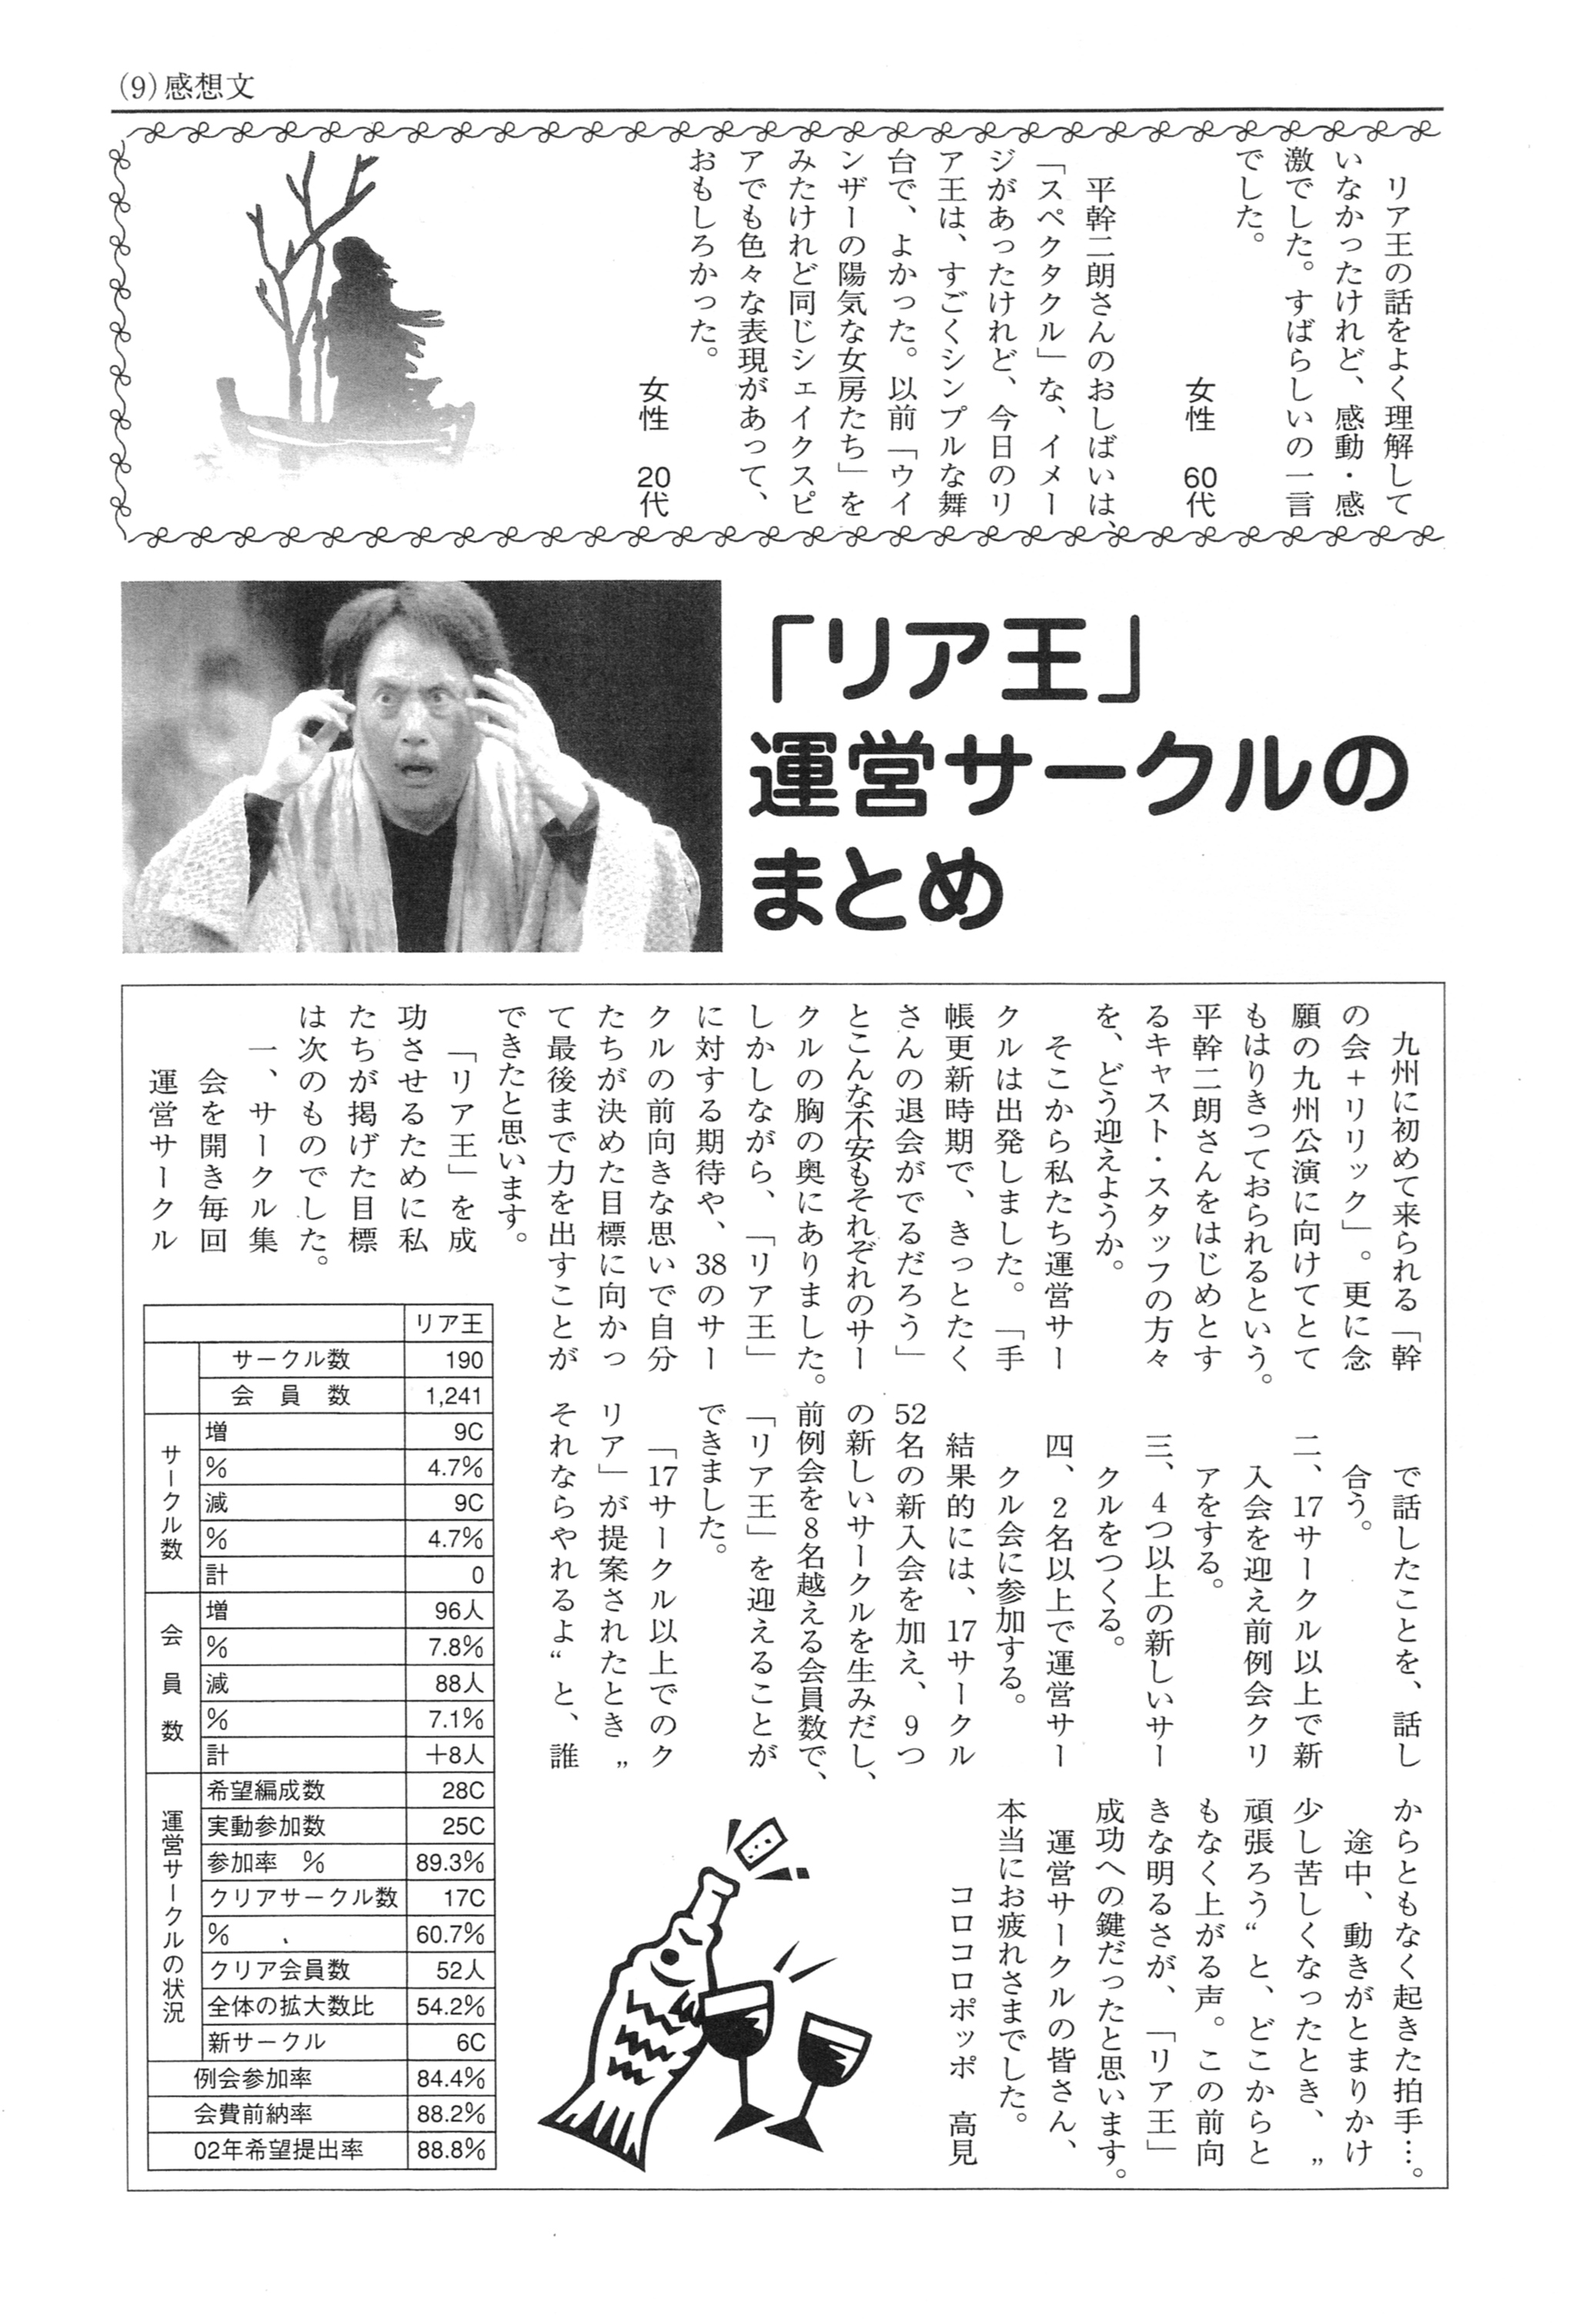 (9)感想文
　リア王の話をよく理解して
いなかったけれど、感動・感
激でした。すばらしいの一言
でした。
女性　60代
　平幹二朗さんのおしばいは、
「スペクタクル」な、イメー
ジがあったけれど、今日のリ
ア王は、すごくシンプルな舞
台で、よかった。以前「ウイ
ンザーの陽気な女房たち」を
みたけれど同じシェイクスピ
アでも色々な表現があって、
おもしろかった。
女性　20代
「リア王」
運営サークルの
まとめ
　九州に初めて来られる「幹
の会＋リリック」。更に念
願の九州公演に向けてとて
もはりきっておられるという。
平幹二朗さんをはじめとす
るキャスト・スタッフの方々
を、どう迎えようか。
　そこから私たち運営サー
クルは出発しました。「手
帳更新時期で、きっとたく
さんの退会がでるだろう」
とこんな不安もそれぞれのサー
クルの胸の奥にありました。
しかしながら、「リア王」
に対する期待や、38のサー
クルの前向きな思いで自分
たちが決めた目標に向かっ
て最後まで力を出すことが
できたと思います。
　「リア王」を成
功させるために私
たちが掲げた目標
は次のものでした。
　一、サークル集
　　会を開き毎回
　　運営サークル
　　で話したことを、話し
　　合う。
　二、17サークル以上で新
　　入会を迎え前例会クリ
　　アをする。
　三、4つ以上の新しいサー
　　クルをつくる。
　四、2名以上で運営サー
　　クル会に参加する。
　結果的には、17サークル
52名の新入会を加え、9つ
の新しいサークルを生みだし、
前例会を8名越える会員数で、
「リア王」を迎えることが
できました。
　「17サークル以上でのク
リア」が提案されたとき〟
それならやれるよ〝と、誰
からともなく起きた拍手…。
　途中、動きがとまりかけ
少し苦しくなったとき、〟
頑張ろう〝と、どこからと
もなく上がる声。この前向
きな明るさが、「リア王」
成功への鍵だったと思います。
　運営サークルの皆さん、
本当にお疲れさまでした。
コロコロポッポ　高見
リア王
サークル数 190
会　員　数 1,241
サークル数
増 9C
％ 4.7％
減 9C
％ 4.7％
計 0
会員数
増 96人
％ 7.8％
減 88人
％ 7.1％
計 ＋8人
運営サークルの状況
希望編成数 28C
実動参加数 25C
参加率　％ 89.3％
クリアサークル数 17C
％ 60.7％
クリア会員数 52人
全体の拡大数比 54.2％
新サークル 6C
例会参加率 84.4％
会費前納率 88.2％
02年希望提出率 88.8％